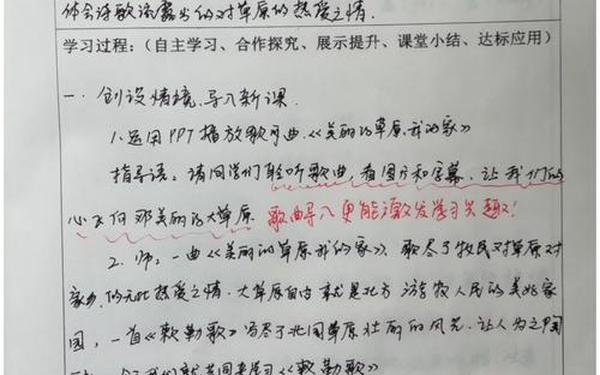 体会诗歌流露出的对草原的热爱之情.
学习过程:(自主学习、合作探究、展示提升、课堂小结、达标应用)
一. 创设情境,导入新课.
1.运用PPT播放歌曲.《美丽的草原我的家》
指导语:请同学们聆听歌曲,看图片和屏幕.让我们的
心飞向那美丽的大草原. 歌曲导入更能激发学习兴趣!
2.师:一曲《美丽的草原我的家》,歌尽了牧民对草原对
家乡的无比热爱之情.大草原自古就是北方游牧人民的美好家
园,一首《敕勒歌》写尽了北国草原壮丽的风光.让人为之
我们就共同来学习《敕勒歌》